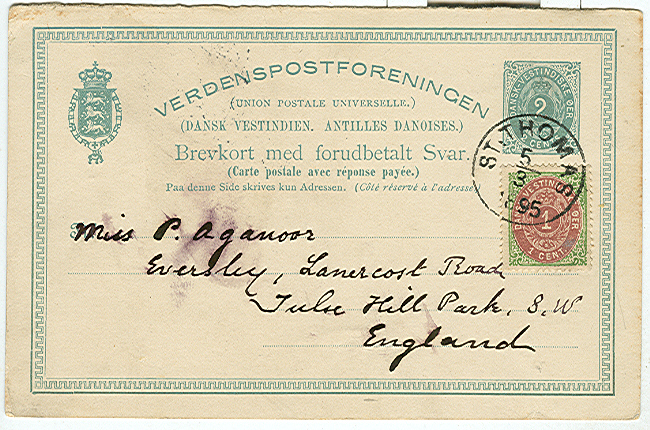 VERDENSPOSTFORENINGEN
(UNION POSTALE UNIVERSELLE.)
(DANSK VESTINDIEN. ANTILLES DANOISES.)
Brevkort med forudbetalt Svar.
(Carte postale avec réponse payée.)
Paa denne Side skrives kun Adressen. (Côté réservé à l'adresse
2
CENT
ST. THOMAS
5
95
1 CENT
Miss P. Aganoor
Eversley, Lanercost Road
Tulse Hill Park, S.W
England